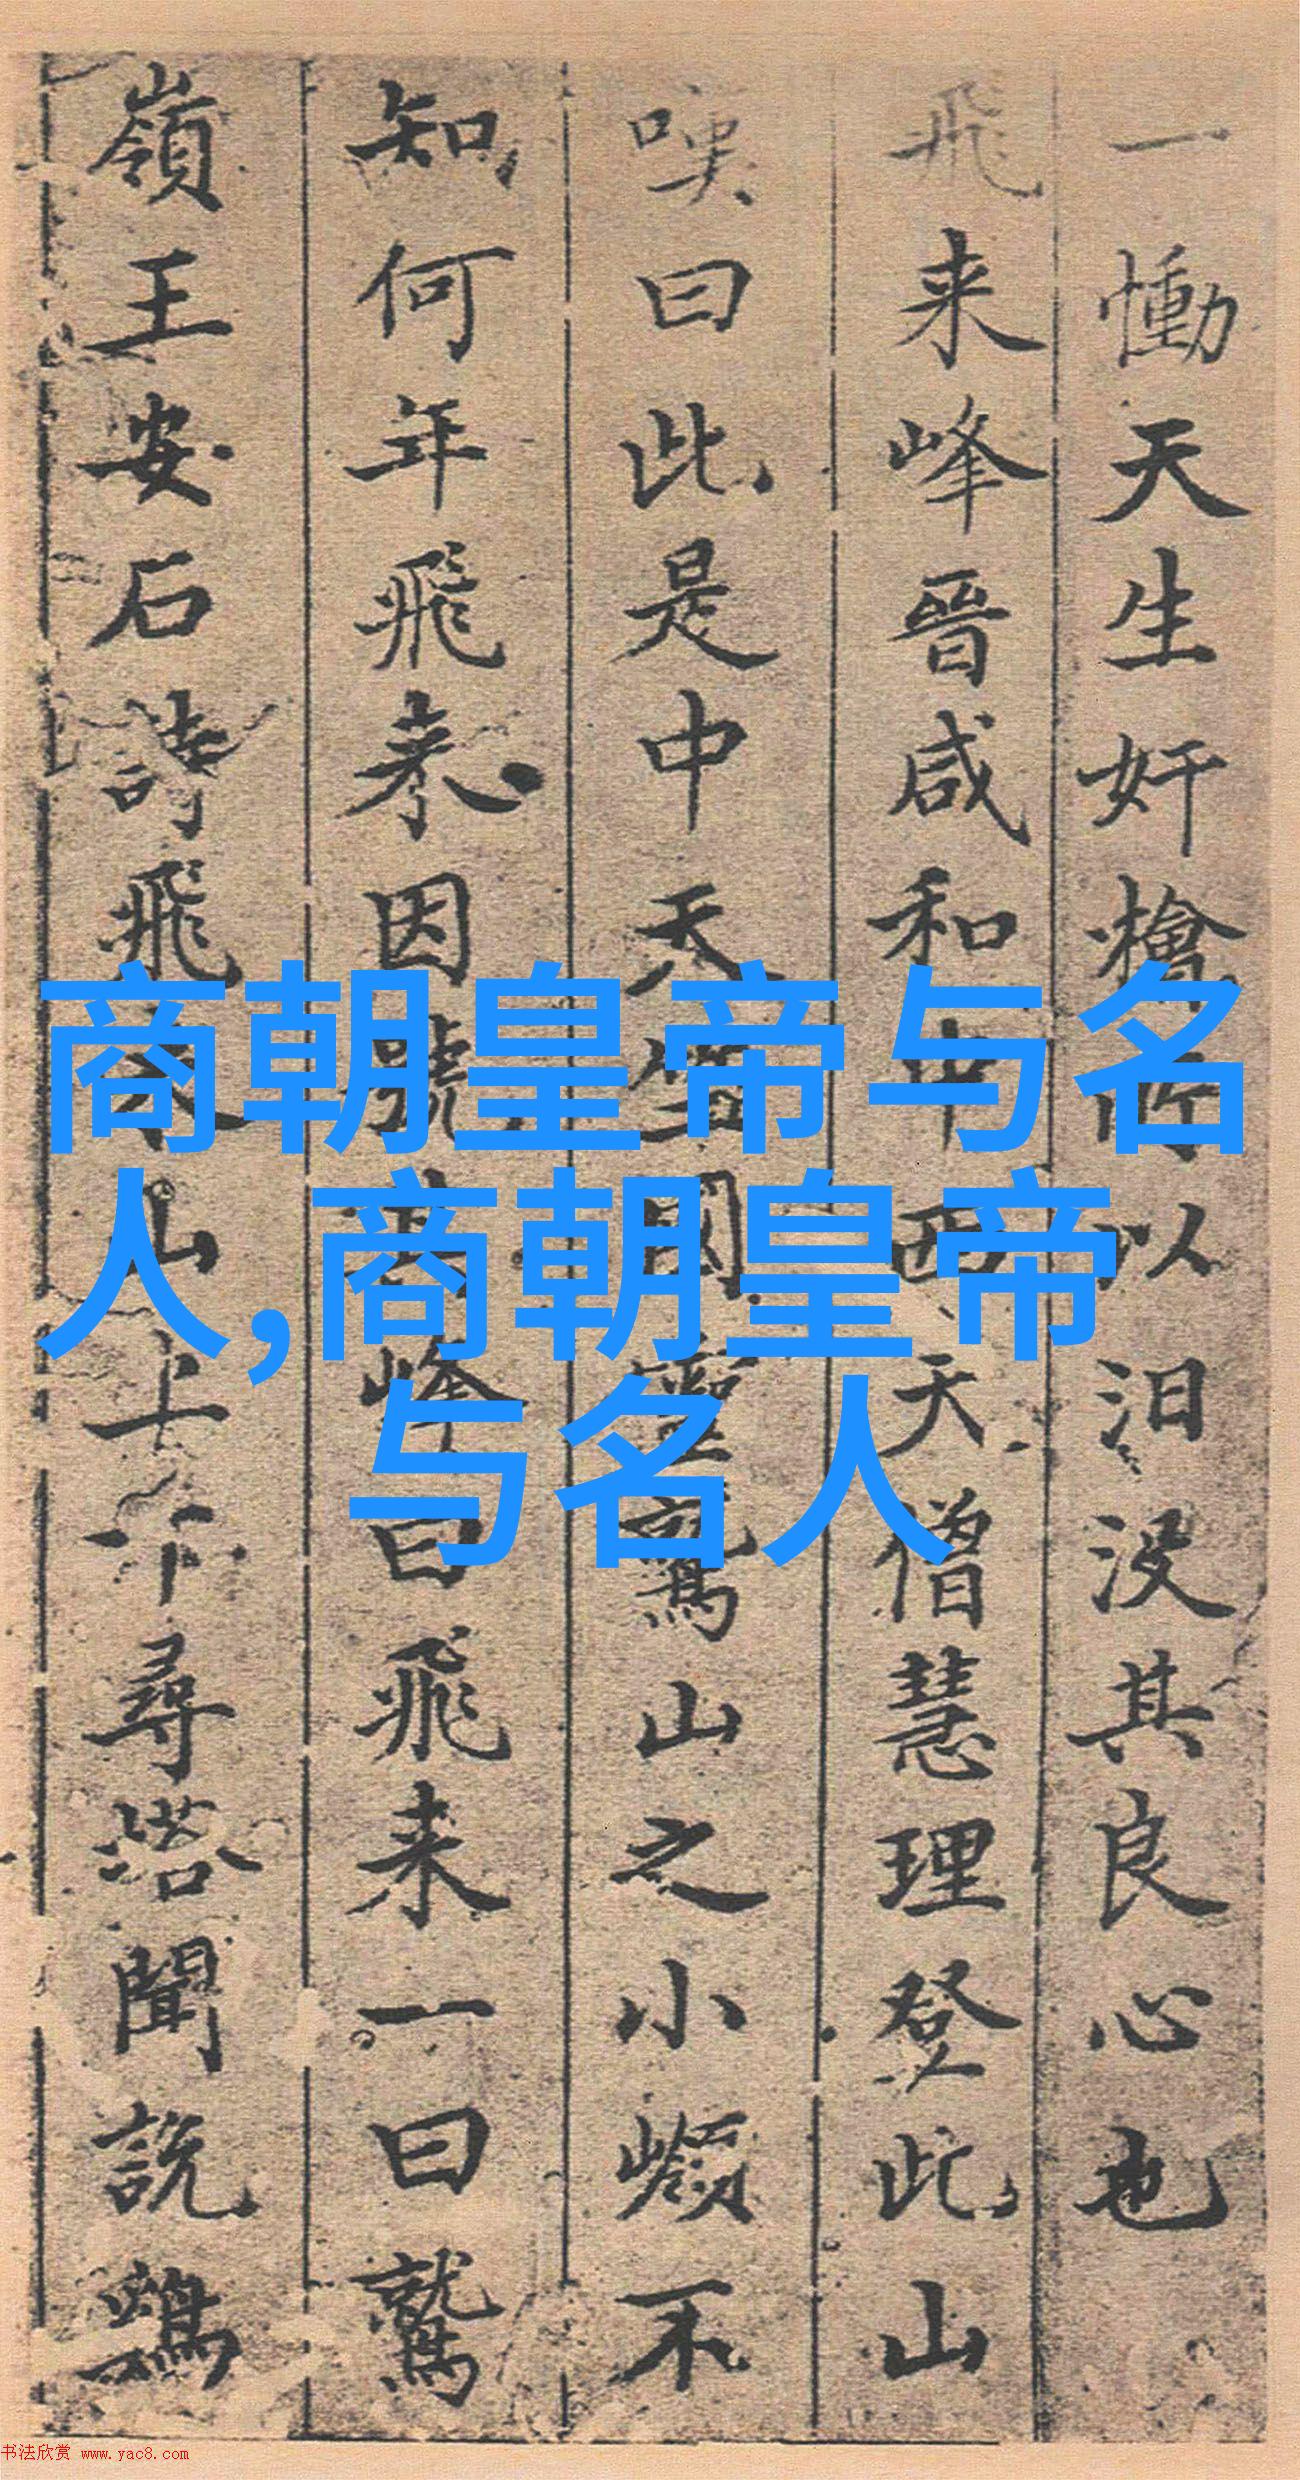 一慟天生奸檜所以汩没其良心也
飛来峰晉咸和中西天僧慧理登此山
嘆曰此是中天竺國靈鷲山之小嶺不
知何年飛来因號其峰曰飛来一曰鷲
嶺王安石詩飛来山上千尋塔聞説鷄
商朝皇帝与名
人,商朝皇帝
与名人
书法欣赏 www.yac8.com